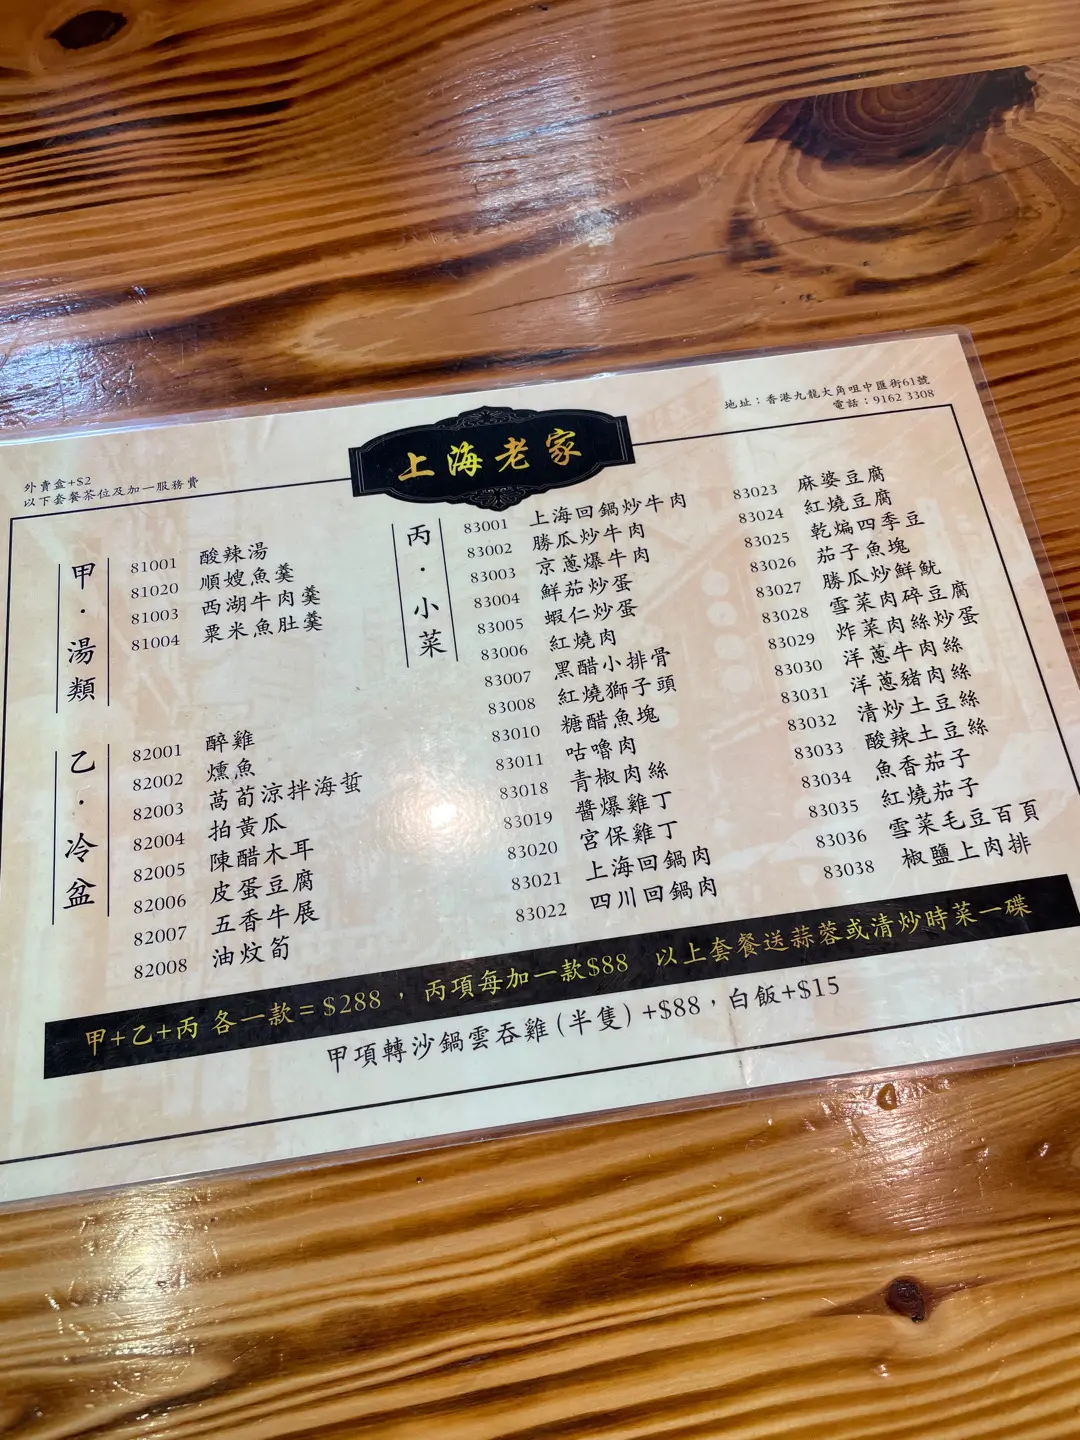 地址：香港九龍大角咀中匯街61號
電話：9162 3308
上海老家
外賣盒+$2
以下套餐茶位及加一服務費
甲·湯類
81001 酸辣湯
81020 順嫂魚羹
81003 西湖牛肉羹
81004 粟米魚肚羹
乙·冷盆
82001 醉雞
82002 燻魚
82003 萵筍涼拌海蜇
82004 拍黃瓜
82005 陳醋木耳
82006 皮蛋豆腐
82007 五香牛展
82008 油炆筍
丙·小菜
83001 上海回鍋炒牛肉
83002 勝瓜炒牛肉
83003 京蔥爆牛肉
83004 鮮茄炒蛋
83005 蝦仁炒蛋
83006 紅燒肉
83007 黑醋小排骨
83008 紅燒獅子頭
83010 糖醋魚塊
83011 咕嚕肉
83018 青椒肉絲
83019 醬爆雞丁
83020 宮保雞丁
83021 上海回鍋肉
83022 四川回鍋肉
83023 麻婆豆腐
83024 紅燒豆腐
83025 乾煸四季豆
83026 茄子魚塊
83027 勝瓜炒鮮魷
83028 雪菜肉碎豆腐
83029 炸菜肉絲炒蛋
83030 洋蔥牛肉絲
83031 洋蔥豬肉絲
83032 清炒土豆絲
83033 酸辣土豆絲
83034 魚香茄子
83035 紅燒茄子
83036 雪菜毛豆百頁
83038 椒鹽上肉排
甲+乙+丙 各一款=$288，丙項每加一款$88 以上套餐送蒜蓉或清炒時菜一碟
甲項轉沙鍋雲吞雞(半隻)+$88，白飯+$15